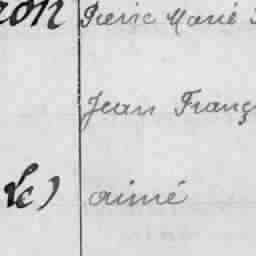 ron Pierre Marie
Jean Franç
Le) aimé